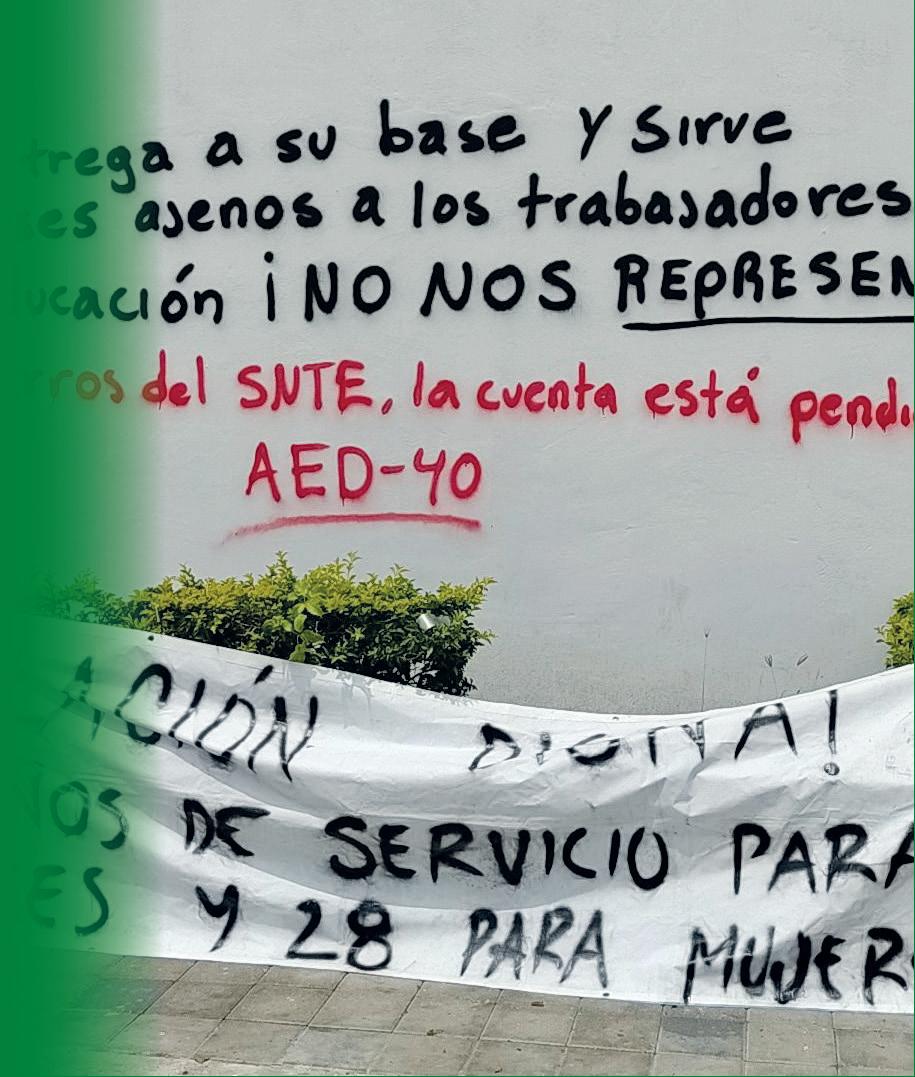 trega a su base y sirve
ses ajenos a los trabajadores
ucación ¡NO NOS REPRESEN
rros del SNTE, la cuenta está pendi
AED-40
ACIÓN DIGNA!
ÑOS DE SERVICIO PARA
ES Y 28 PARA MUJER